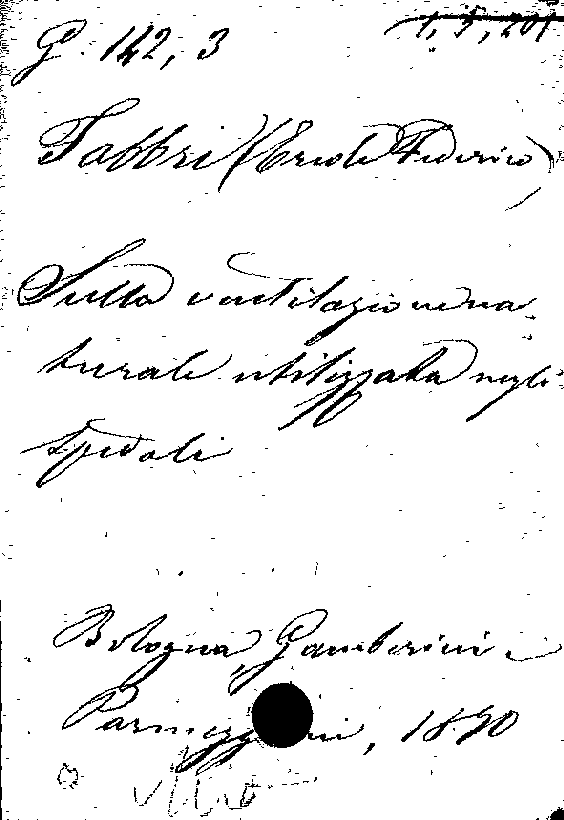 G. 142, 3
1, 5, 201
Fabbri (Ercole Federico)
Sulla ventilazione na-
turale utilizzata negli
spedali
Bologna, Gamberini e
Parmeggiani, 1890